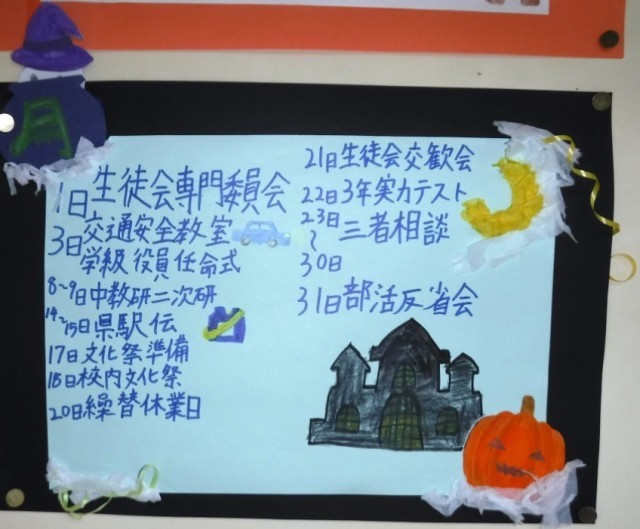 月
1日生徒会専門委員会
3日交通安全教室
学級役員任命式
8~9日中教研二次研
14~15日県駅伝
17日文化祭準備
18日校内文化祭
20日繰替休業日
21日生徒会交歓会
22日3年実力テスト
23日
~
30日
三者相談
31日部活反省会